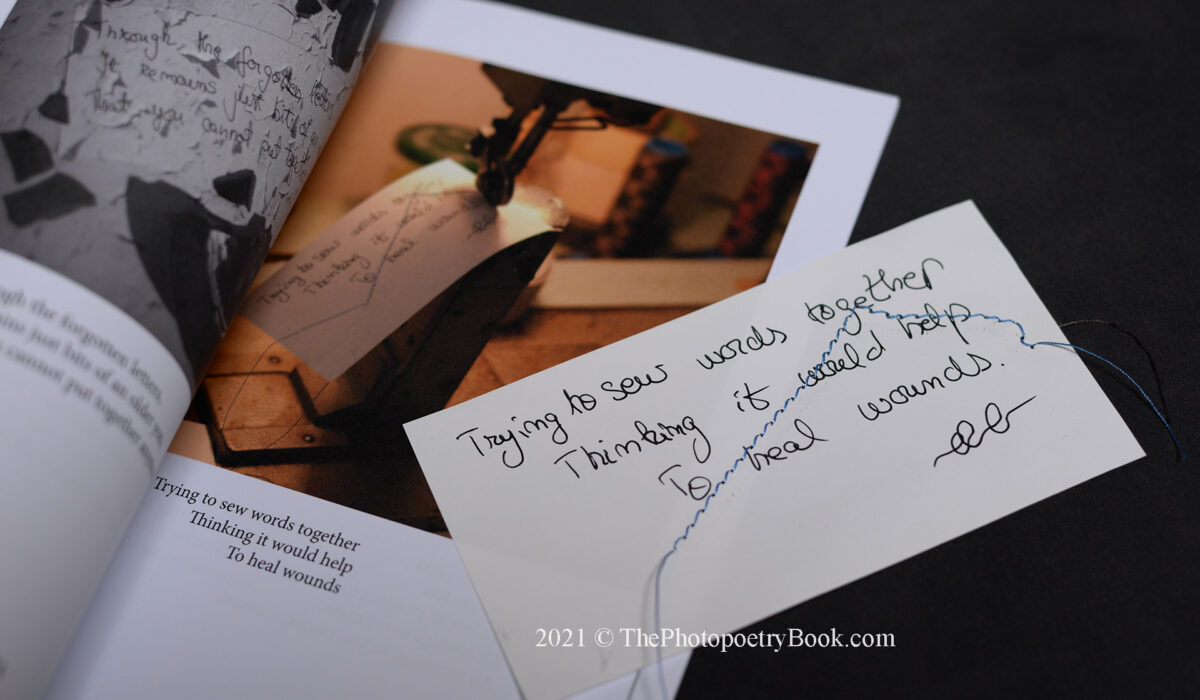 Through the forgotten letter
It remains just bits of an
That you cannot put together
ugh the forgotten letters,
ains just bits of an older you
cannot put together
Trying to sew words together
Thinking it would help
To heal wounds
Trying to sew words together
Thinking it would help
To heal wounds
Trying to sew words together
Thinking it would help
To heal wounds.
2021 © ThePhotopoetryBook.com